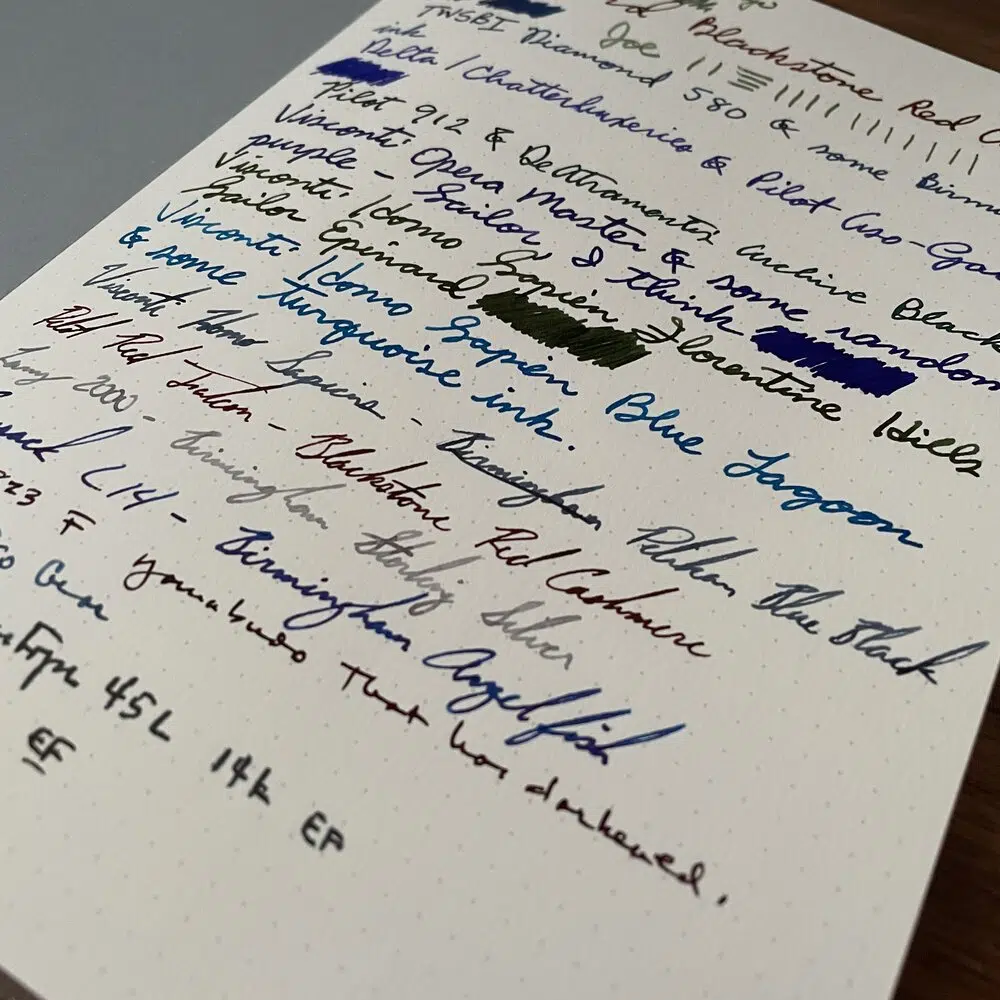 Blackstone Red
Joe
TWSBI Diamond 580 & some Birm
ink
Delta / Chatterluxeries & Pilot Iso-Ga
Pilot 912 & DeAtramentis Archive Black
Visconti Opera Master & some random
purple - Sailor I think
Visconti Homo Sapien Florentine Hills
Sailor Epinard
Visconti Homo Sapien Blue Lagoon
& some turquoise ink.
Visconti Homo Sapiens - Birmingham Pelikan Blue Black
Pilot Red Falcon - Blackstone Red Cashmere
Lamy 2000 - Birmingham Sterling Silver
L14 - Birmingham Angelfish
823 F yamabudo That has darkened.
Gem
45L 14k EF
EF